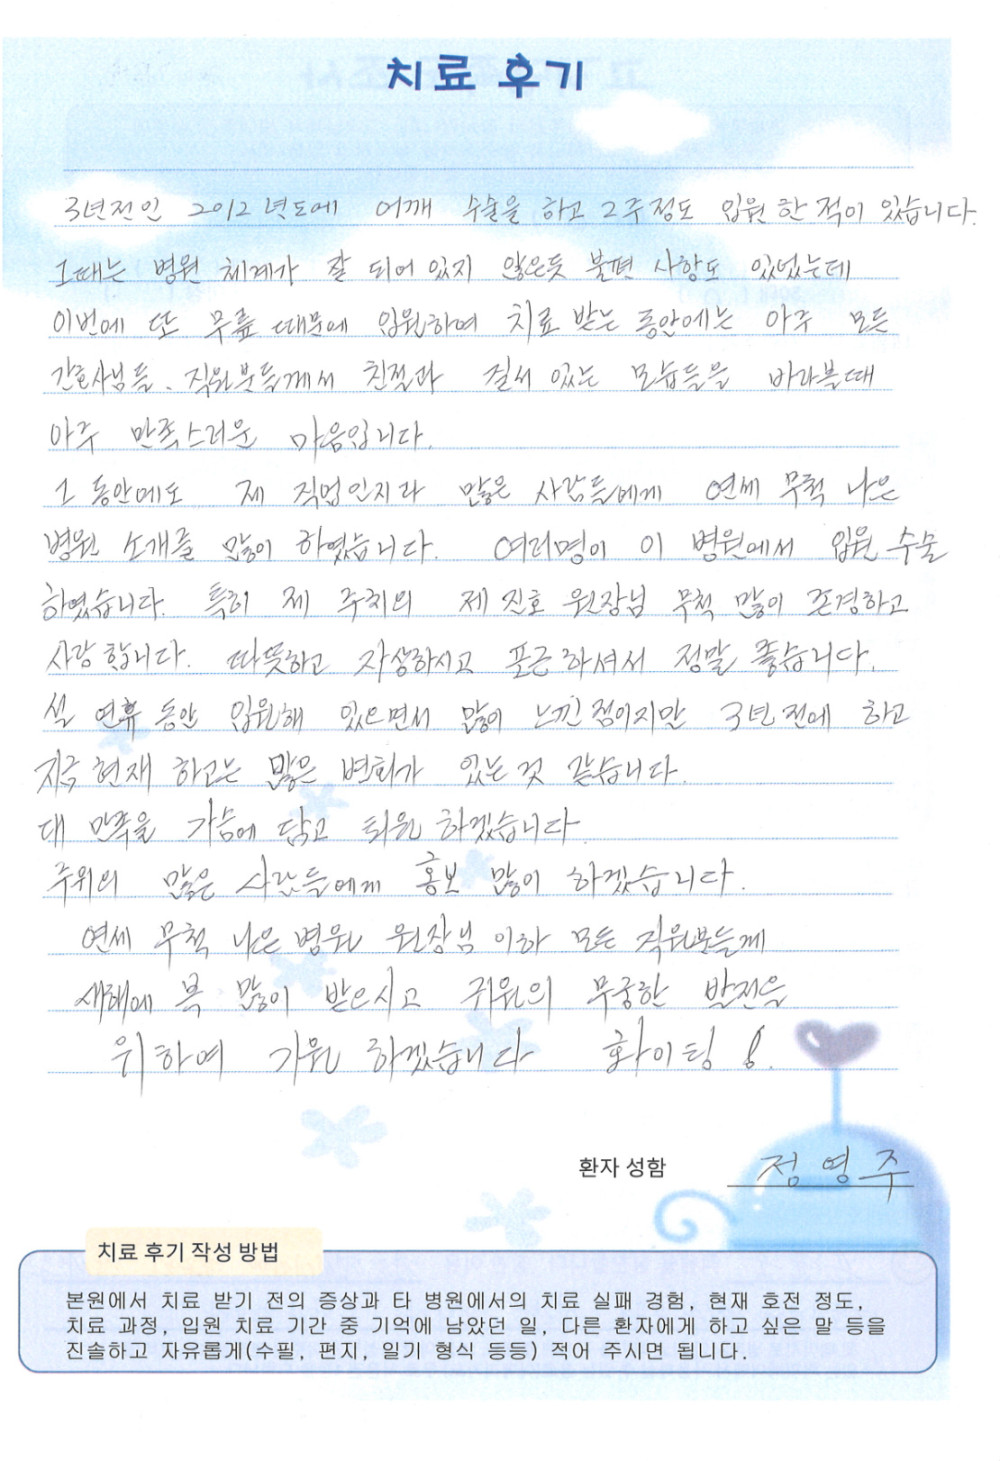 치료 후기
3년전인 2012년도에 어깨 수술을 하고 2주정도 입원 한 적이 있습니다.
그때는 병원 체계가 잘 되어 있지 않은듯 불편 사항도 있었는데
이번에 또 무릎 때문에 입원하여 치료 받는 동안에는 아주 모든
간호사님들, 직원분들께서 친절과 질서 있는 모습들을 바라볼때
아주 만족스러운 마음입니다.
그 동안에도 제 직업인지라 많은 사람들에게 연세 무척 나은
병원 소개를 많이 하였습니다. 여러명이 이 병원에서 입원 수술
하였습니다. 특히 제 주치의 제진호 원장님 무척 많이 존경하고
사랑합니다. 따뜻하고 자상하시고 포근하셔서 정말 좋습니다.
설 연휴 동안 입원해 있으면서 많이 느낀 점이지만 3년 전에 하고
지금 현재 하고는 많은 변화가 있는 것 같습니다.
대 만족을 가슴에 담고 퇴원 하겠습니다
주위의 많은 사람들에게 홍보 많이 하겠습니다.
연세 무척 나은 병원 원장님 이하 모든 직원분들께
새해에 복 많이 받으시고 귀원의 무궁한 발전을
위하여 기원 하겠습니다 화이팅!
환자 성함 정영주
치료 후기 작성 방법
본원에서 치료 받기 전의 증상과 타 병원에서의 치료 실패 경험, 현재 호전 정도,
치료 과정, 입원 치료 기간 중 기억에 남았던 일, 다른 환자에게 하고 싶은 말 등을
진솔하고 자유롭게(수필, 편지, 일기 형식 등등) 적어 주시면 됩니다.